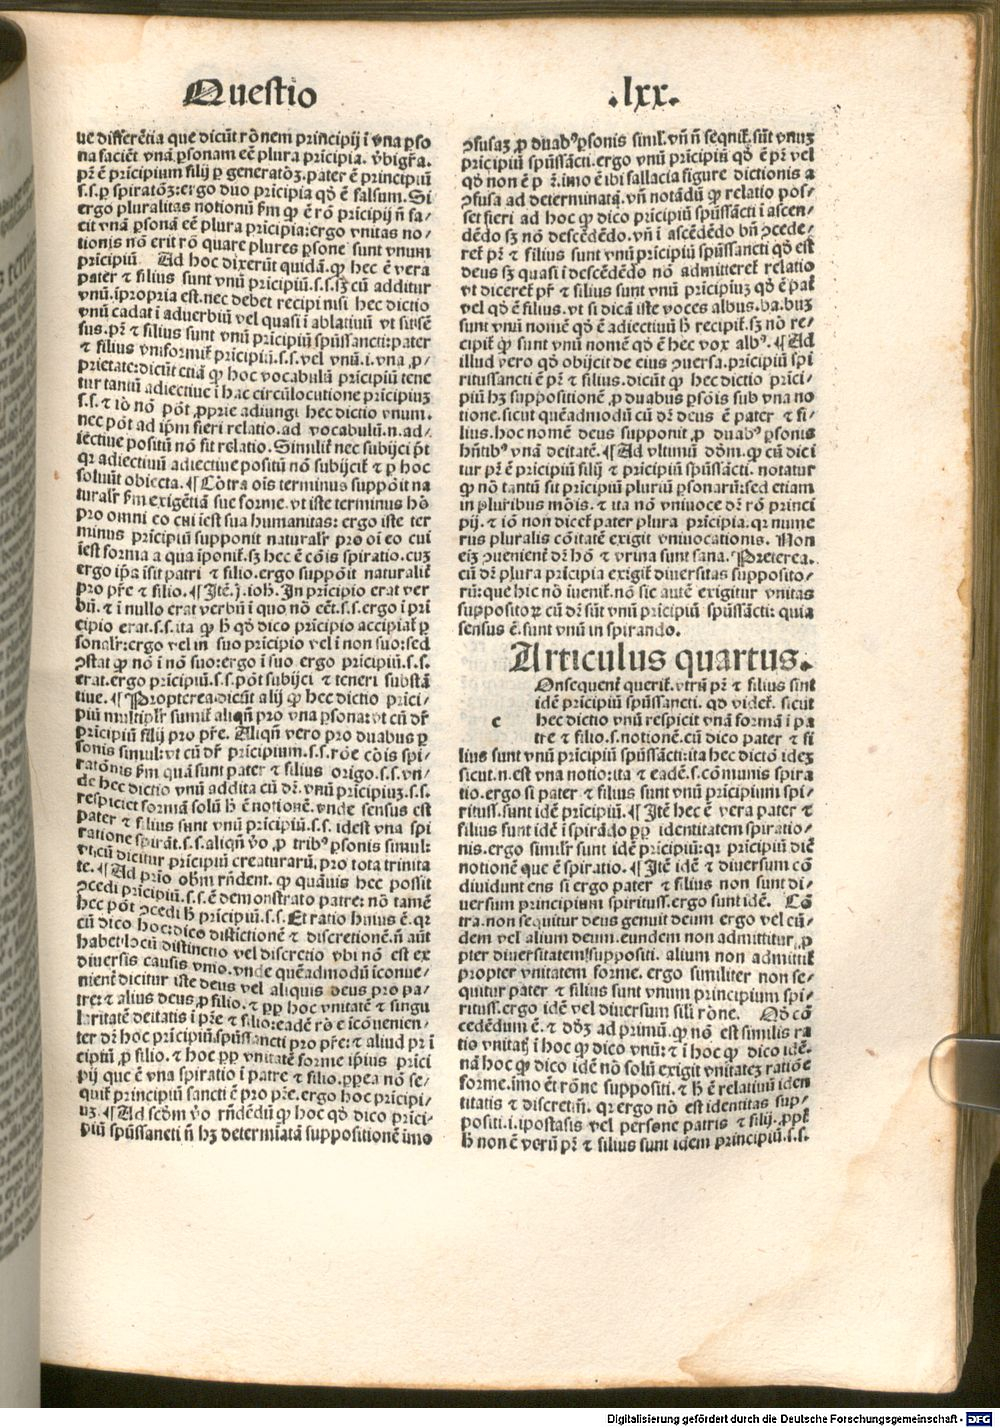 Questio .lxx.
ue differẽtia que dicũt rõnem principij ĩ vna ꝑso
na faciẽt vnã ꝑsonam eẽ plura pricipia. vbigr̃a.
pr̃ ẽ pricipium filij ꝑ generatõꝫ.pater ẽ principiũ
s.s.ꝑ spiratõꝫ:ergo duo pricipia qđ ẽ falsum. Si
ergo pluralitas notionũ ẜm ꝙ ẽ rõ pricipij ñ fa/
cit vnã ꝑsonã eẽ plura pricipia:ergo vnitas no/
tionis nõ erit rõ quare plures ꝑsone sunt vnum
pricipiũ Ad hoc dixerũt quidã.ꝙ hec ẽ vera
pater ⁊ filius sunt vnũ pricipiũ.s.s.sꝫ cũ additur
vnũ.ipropria est.nec debet recipi nisi hec dictio
vnũ cadat i aduerbiũ vel quasi i ablatiuũ vt sit sẽ
sus.pr̃ ⁊ filius sunt vnũ pricipiũ spũssancti:pater
⁊ filius vniformit̃ pricipiũ.s.s.vel vnũ.i.vna ,p/
prietate:dicũt etiã ꝙ hoc vocabulũ pricipiũ tene
tur tantũ adiectiue i hac circũlocutione pricipiuꝫ
s.s.⁊ iõ nõ põt ,pprie adiungi hec dictio vnum.
nec põt ad ip̃m fieri relatio.ad vocabulũ.n.ad/
iectiue positũ nõ fit relatio. Similit̃ nec subijci põt
qr adiectiuũ adiectiue positũ nõ subijcit̃ ⁊ ꝑ hoc
soluũt obiecta.¶ Cõtra oĩs terminus suppõit na
turalr̃ ẜm exigẽtiã sue forme.vt iste terminus hõ
pro omni eo cui iest sua humanitas: ergo iste ter
minus pricipiũ supponit naturalr̃ pro oi eo cui
iest forma a qua iponit̃.sꝫ hec ẽ cõis spiratio.cuꝫ
ergo ip̃a isit patri ⁊ filio.ergo suppõit naturalit̃
pro pr̃e ⁊ filio.¶ Itẽ.j.ioh̃.In pricipio erat ver
bũ.⁊ i nullo erat verbũ i quo nõ eẽt.s.s.ergo i pri
cipio erat.s.s.ita ꝙ ħ qđ dico pricipio accipiat̃ ꝑ
sonalr̃:ergo vel in suo pricipio vel i non suo:sed
ꝯstat ꝙ nõ i nõ suo:ergo i suo ergo pricipiũ.s.s.
erat.ergo pricipiũ.s.s.põt subijci ⁊ teneri substã
tiue.¶ Propterea dicũt alij ꝙ hec dictio prici/
piũ multiplr̃ sumit̃ aliqñ pro vna ꝑsona:vt cũ dr̃
pricipiũ filij pro pr̃e. Aliqñ vero pro duabus ꝑ
sonis simul:vt cũ dr̃ pricipium.s.s.rõe cõis spi/
ratõnis ẜm quã sunt pater ⁊ filius origo.s.s.vn/
de hec dictio vnũ addita cũ dr̃.vnũ pricipiuꝫ.s.s.
respiciet formã solũ ħ ẽ notionẽ.vnde sensus est
pater ⁊ filius sunt vnũ pricipiũ.s.s. idest vna spi
ratione spirãt.s.s.aliqñ ṽo ,p trib⁹ ꝑsonis simul:
vt,cũ dicitur pricipiũ creaturarũ.pro tota trinita
te.¶ Ad prio obm̃ rñdent. ꝙ quãuis hec possit
ꝯcedi pricipiũ.s.s.ẽ demonstrato patre: nõ tamẽ
hec põt ꝯcedi ħ pricipiũ.s.s. Et ratio huius ẽ.qr
cũ dico hoc:dico distictionẽ ⁊ discretionẽ.ñ aũt
habet locũ distinctio vel discretio vbi nõ est ex
diuersis causis vnio.vnde quẽadmodũ icõnue/
nienẽt dicitur iste deus vel aliquis deus pro pa/
tre:⁊ alius deus ,p filio.⁊ ꝓp hoc vnitatẽ ⁊ singu
laritatẽ deitatis i pr̃e ⁊ filio:eadẽ rõ ẽ icõuenien/
ter dr̃ hoc pricipiũ.spũssancti pro pr̃e:⁊ aliud pr i
cipiũ ,p filio.⁊ hoc ꝓp vnitatẽ forme ip̃ius prici
pij que ẽ vna spiratio i patre ⁊ filio.ꝓpea nõ se/
quit̃ principiũ sancti ẽ pro pr̃e.ergo hoc pricipi/
uꝫ.¶ Ad scđm ṽo rñdẽdũ ꝙ hoc qđ dico prici/
piũ spũssancti ñ hꝫ determiatã suppositionẽ imo
ꝯfusaꝫ ,p duab⁹ ꝑsonis simĩl.vñ ñ seqnit̃.sũt vnuꝫ
pricipiũ spũssãcti.ergo vnũ pricipiũ qđ ẽ pr̃ vel
qđ non ẽ p r̃.imo ẽ ibi fallacia figure dictionis a
ꝯfusa ad determinatã.vñ notãdũ ꝙ relatio pos/
set fieri ad hoc ꝙ dico pricipiũ spũssãcti i ascen/
dẽdo sꝫ nõ descẽdẽdo.vñ i ascẽdẽdo bñ ꝯcede/
ret̃ pr̃ ⁊ filius sunt vnũ pricipiũ spũssancti qđ est
deus sꝫ quasi i descẽdẽdo nõ admitteret̃ relatio
vt diceret̃ pr̃ ⁊ silius sunt vnũ pricipiuꝫ qđ ẽ pat̃
vel qđ ẽ filius.vt si dicã iste voces albus.ba.buꝫ
sunt vnũ nomẽ qđ ẽ adiectiuũ ħ recipit̃.sꝫ nõ re/
cipit̃ ꝙ sunt vnũ nomẽ qđ ẽ hec vox alb⁹.¶ Ad
illud vero qđ obijcit de eius ꝯuersa.pricipiũ spi
ritussancti ẽ pr̃ ⁊ filius.dicũt ꝙ hec dictio prici/
piũ hꝫ suppositionẽ ,p duabus ꝑsõis sub vna no
tione.sicut quẽadmodũ cũ dr̃ deus ẽ pater ⁊ fi/
lius.hoc nomẽ deus supponit ,p duab⁹ ꝑsonis
hñtib⁹ vnã deitatẽ.¶ Ad vltimũ dõm.ꝙ cũ dici
tur pr̃ ẽ pricipiũ filij ⁊ pricipiũ spũssãcti. notatur
ꝙ nõ tantũ sit pricipiũ pluriũ ꝑsonarũ:sed etiam
in pluribus mõis.⁊ ita nõ vniuoce dr̃ rõ princi
pij.⁊ iõ non dicet̃ pater plura pricipia.qr nume
rus pluralis cõitatẽ exigit vniuocationis. Non
eiꝫ ꝯuenient̃ dr̃ hõ ⁊ vrina sunt sana. Preterea.
cũ dr̃ plura pricipia exigit̃ diuersitas supposito/
rũ:que hic nõ iuenit̃.nõ sic autẽ exigitur vnitas
suppositoꝝ cũ dr̃ sũt vnũ pricipiũ spũssãcti: quia
sensus ẽ.sunt vnũ in spirando.
Articulus quartus.
c
Onsequent̃ querit̃.vtrũ pr̃ ⁊ filius sint
idẽ pricipiũ spũssancti. qđ videt̃. sicut
hec dictio vnũ respicit vnã formã i pa
tre ⁊ filio.s.notionẽ.cũ dico pater ⁊ fi
lius sunt vnũ pricipiũ spũssãcti:ita hec dictõ ideꝫ
sicut.n.est vna notio:ita ⁊ eadẽ.s.cõmunis spira
tio.ergo si pater ⁊ filius sunt vnũ pricipium spi/
rituss.sunt idẽ pricipiũ.¶ Itẽ hec ẽ vera pater ⁊
filius sunt idẽ i spirãdo ꝓp identitatem spiratio/
nis.ergo similr̃ sunt idẽ pricipiũ:qr pricipiũ diẽ
notionẽ que ẽ spiratio.¶ Itẽ idẽ ⁊ diuersum cõ
diuidunt ens si ergo pater ⁊ filius non sunt di/
uersum principium spirituss.ergo sunt idẽ. Cõ
tra.non sequitur deus genuit deum ergo vel eũ/
dem vel alium deum.eundem non admittitur ,p
pter diuersitatem suppositi. alium non admittit̃
propter vnitatem forme. ergo similiter non se/
quitur pater ⁊ filius sunt vnum principium spi/
rituss.ergo idẽ vel diuersum sili rõne. Qđ cõ
cedẽdum ẽ.⁊ dõꝫ ad primũ.ꝙ nõ est similis ra
tio vnitatꝭ i hoc ꝙ dico vnũ:⁊ i hoc ꝙ dico idẽ.
nã hoc ꝙ dico idẽ nõ solũ exigit vnitateꝫ ratiõe
forme.imo et rõne suppositi.⁊ ħ ẽ relatiuũ iden
titatis ⁊ discretiñ. qr ergo nõ est identitas sup/
positi.i.ipostasis vel persone patris ⁊ filij.,ppt̃
ħ non ẽ verũ pr̃ ⁊ filius sunt idem principiũ.s.s.
Digitalisierung gefördert durch die Deutsche Forschungsgemeinschaft - DFG